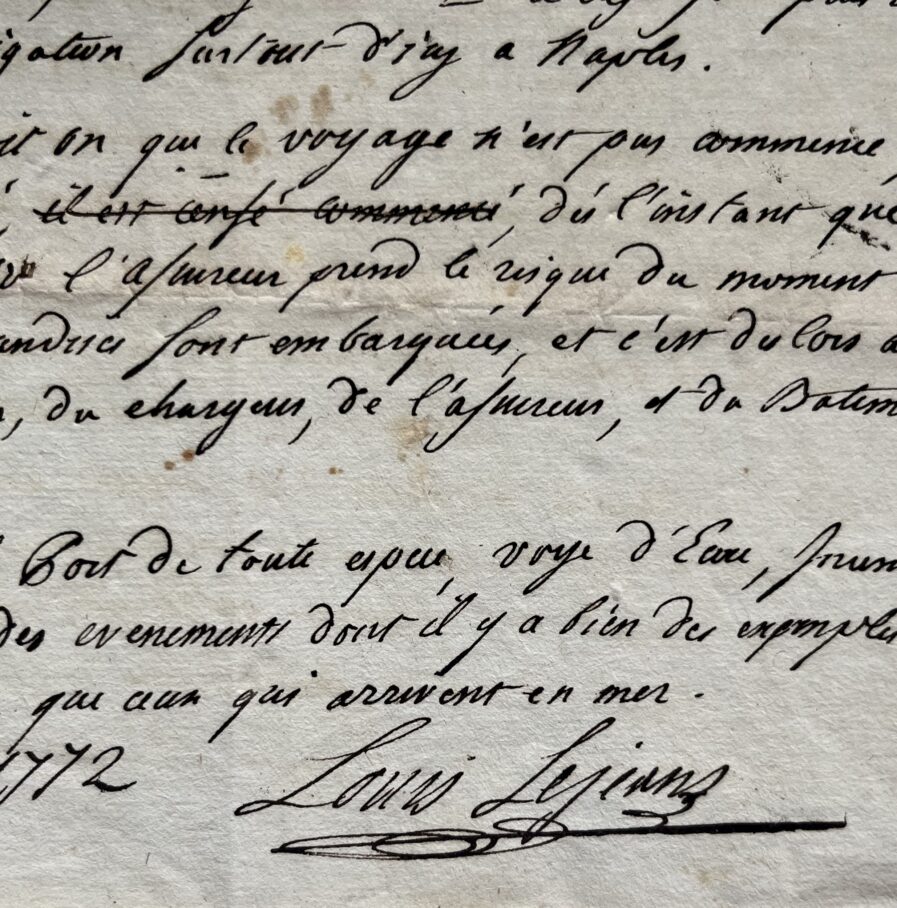 igation surtout d'icy a Naples.
it on que le voyage n'est pas commencé
il est censé commencé, dés l'instant que
l'assureur prend le risque du moment
andises sont embarquées, et c'est des lors a
, du chargeur, de l'assureur, et du Batim
Port de toute espece, voye d'Eau,
des evenements dont il y a bien des exemples
que ceux qui arrivent en mer.
1772 Louis Lejeans